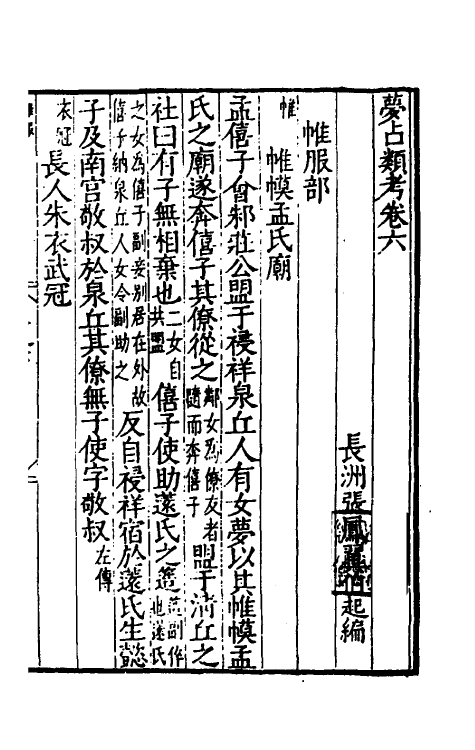 夢占類考卷六
長洲張鳳翼起編
帷服部
帷
帷幙孟氏廟
孟僖子會邾莊公盟于祲祥泉丘人有女夢以其帷幙孟
氏之廟遂奔僖子其僚從之鄰女為僚友者隨而奔僖子盟于清丘之
社曰有子無相棄也二女自共盟僖子使助薳氏之簉簉副倅也薳氏
之女為僖子副妾別居在外故僖子納泉丘人女令副助之反自祲祥宿於薳氏生懿
子及南宮敬叔於泉丘其僚無子使字敬叔左傳
衣冠
長人朱衣武冠